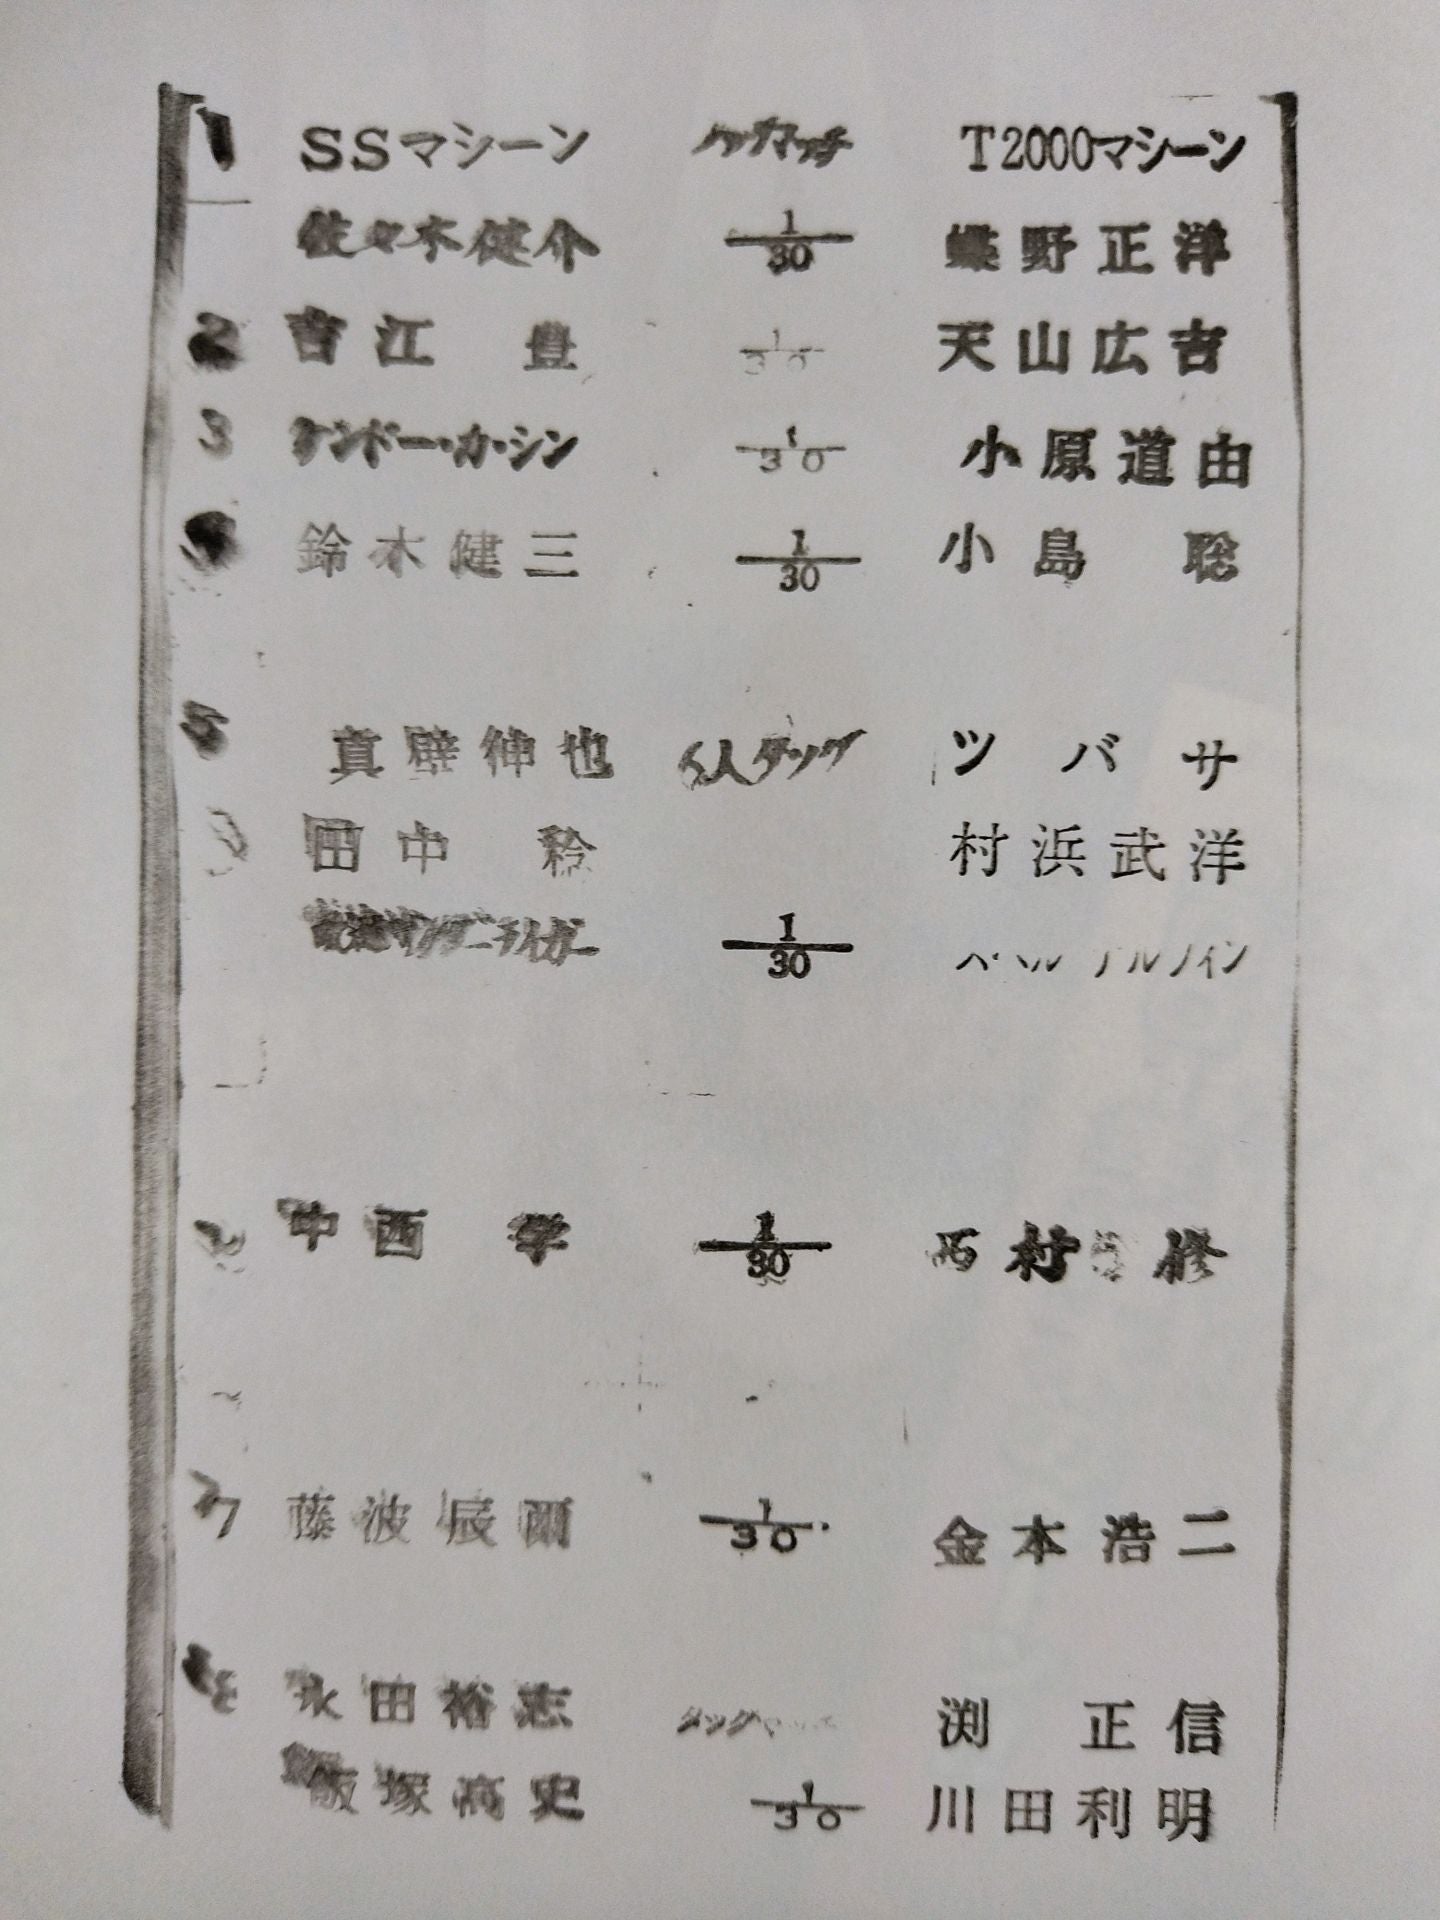 1 SSマシーン タッグマッチ T2000マシーン
佐々木健介 1/30 蝶野正洋
2 吉江 豊 1/30 天山広吉
3 ケンドー・カ・シン 1/30 小原道由
鈴木健三 1/30 小島 聡
5 真壁伸也 6人タッグ ツバサ
田中 稔 村浜武洋
獣神サンダーライガー 1/30
中西 学 1/30 西村 修
7 藤波辰爾 1/30 金本浩二
永田裕志 タッグ 渕 正信
飯塚高史 1/30 川田利明